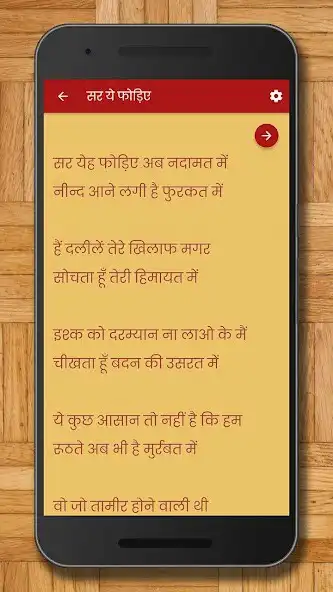 सर ये फोड़िए
सर येह फोड़िए अब नदामत में
नीन्द आने लगी है फुरकत में
हैं दलीलें तेरे खिलाफ मगर
सोचता हूँ तेरी हिमायत में
इश्क को दरम्यान ना लाओ के मैं
चीखता हूँ बदन की उसरत में
ये कुछ आसान तो नहीं है कि हम
रूठते अब भी है मुर्रबत में
वो जो तामीर होने वाली थी